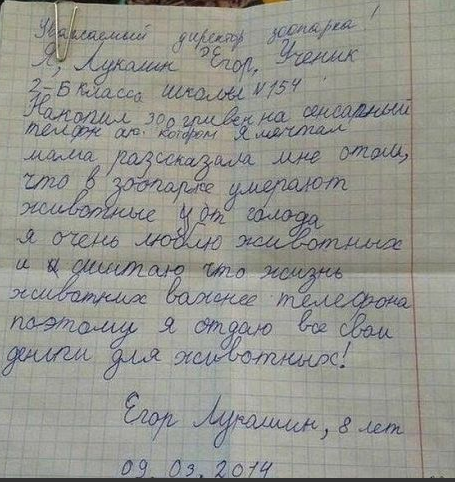 Уважаемый директор зоопарка!
Я, Лукашин Егор, Ученик
2-Б класса школы №154
Накопил 300 гривен на сенсарный
телфон котором я мечтал
мама разссказала мне отом,
что в зоопарке умерают
животные от голода
я очень люблю животных
и считаю что жизнь
животних важнее телефона
поэтому я отдаю все свои
деньги для животных!
Егор Лукашин, 8 лет
09. 03. 2014